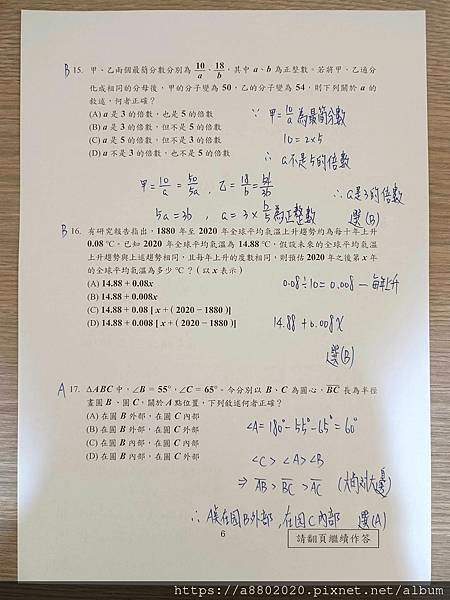 B 15. 甲、乙兩個最簡分數分別為 10/a、18/b,其中 a、b 為正整數。若將甲、乙通分
化成相同的分母後,甲的分子變為 50,乙的分子變為 54,則下列關於 a 的
敘述,何者正確?
(A) a 是 3 的倍數,也是 5 的倍數
(B) a 是 3 的倍數,但不是 5 的倍數
(C) a 是 5 的倍數,但不是 3 的倍數
(D) a 不是 3 的倍數,也不是 5 的倍數
∵ 甲=10/a 為最簡分數
10=2×5
∴ a不是5的倍數
甲=10/a=50/5a , 乙=18/b=54/3b
∴ a是3的倍數
5a=3b , a=3×b/5 為正整數 選(B)
B 16. 有研究報告指出,1880 年至 2020 年全球平均氣溫上升趨勢約為每十年上升
0.08 ℃。已知 2020 年全球平均氣溫為 14.88 ℃,假設未來的全球平均氣溫
上升趨勢與上述趨勢相同,且每年上升的度數相同,則預估 2020 年之後第 x 年
的全球平均氣溫為多少 ℃?(以 x 表示)
(A) 14.88 + 0.08x
(B) 14.88 + 0.008x
(C) 14.88 + 0.08 [ x + ( 2020 − 1880 )]
(D) 14.88 + 0.008 [ x + ( 2020 − 1880 )]
0.08÷10=0.008 — 每年上升
14.88 + 0.008x
選(B)
A 17. ΔABC 中,∠B = 55°,∠C = 65°。今分別以 B、C 為圓心,BC 長為半徑
畫圓 B、圓 C,關於 A 點位置,下列敘述何者正確?
(A) 在圓 B 外部,在圓 C 內部
(B) 在圓 B 外部,在圓 C 外部
(C) 在圓 B 內部,在圓 C 內部
(D) 在圓 B 內部,在圓 C 外部
∠A=180°-55°-65°=60°
∠C > ∠A > ∠B
⇒ AB > BC > AC (大角對大邊)
∴ A點在圓B外部,在圓C內部 選(A)
6
請翻頁繼續作答
https://a8802020.pixnet.net/album